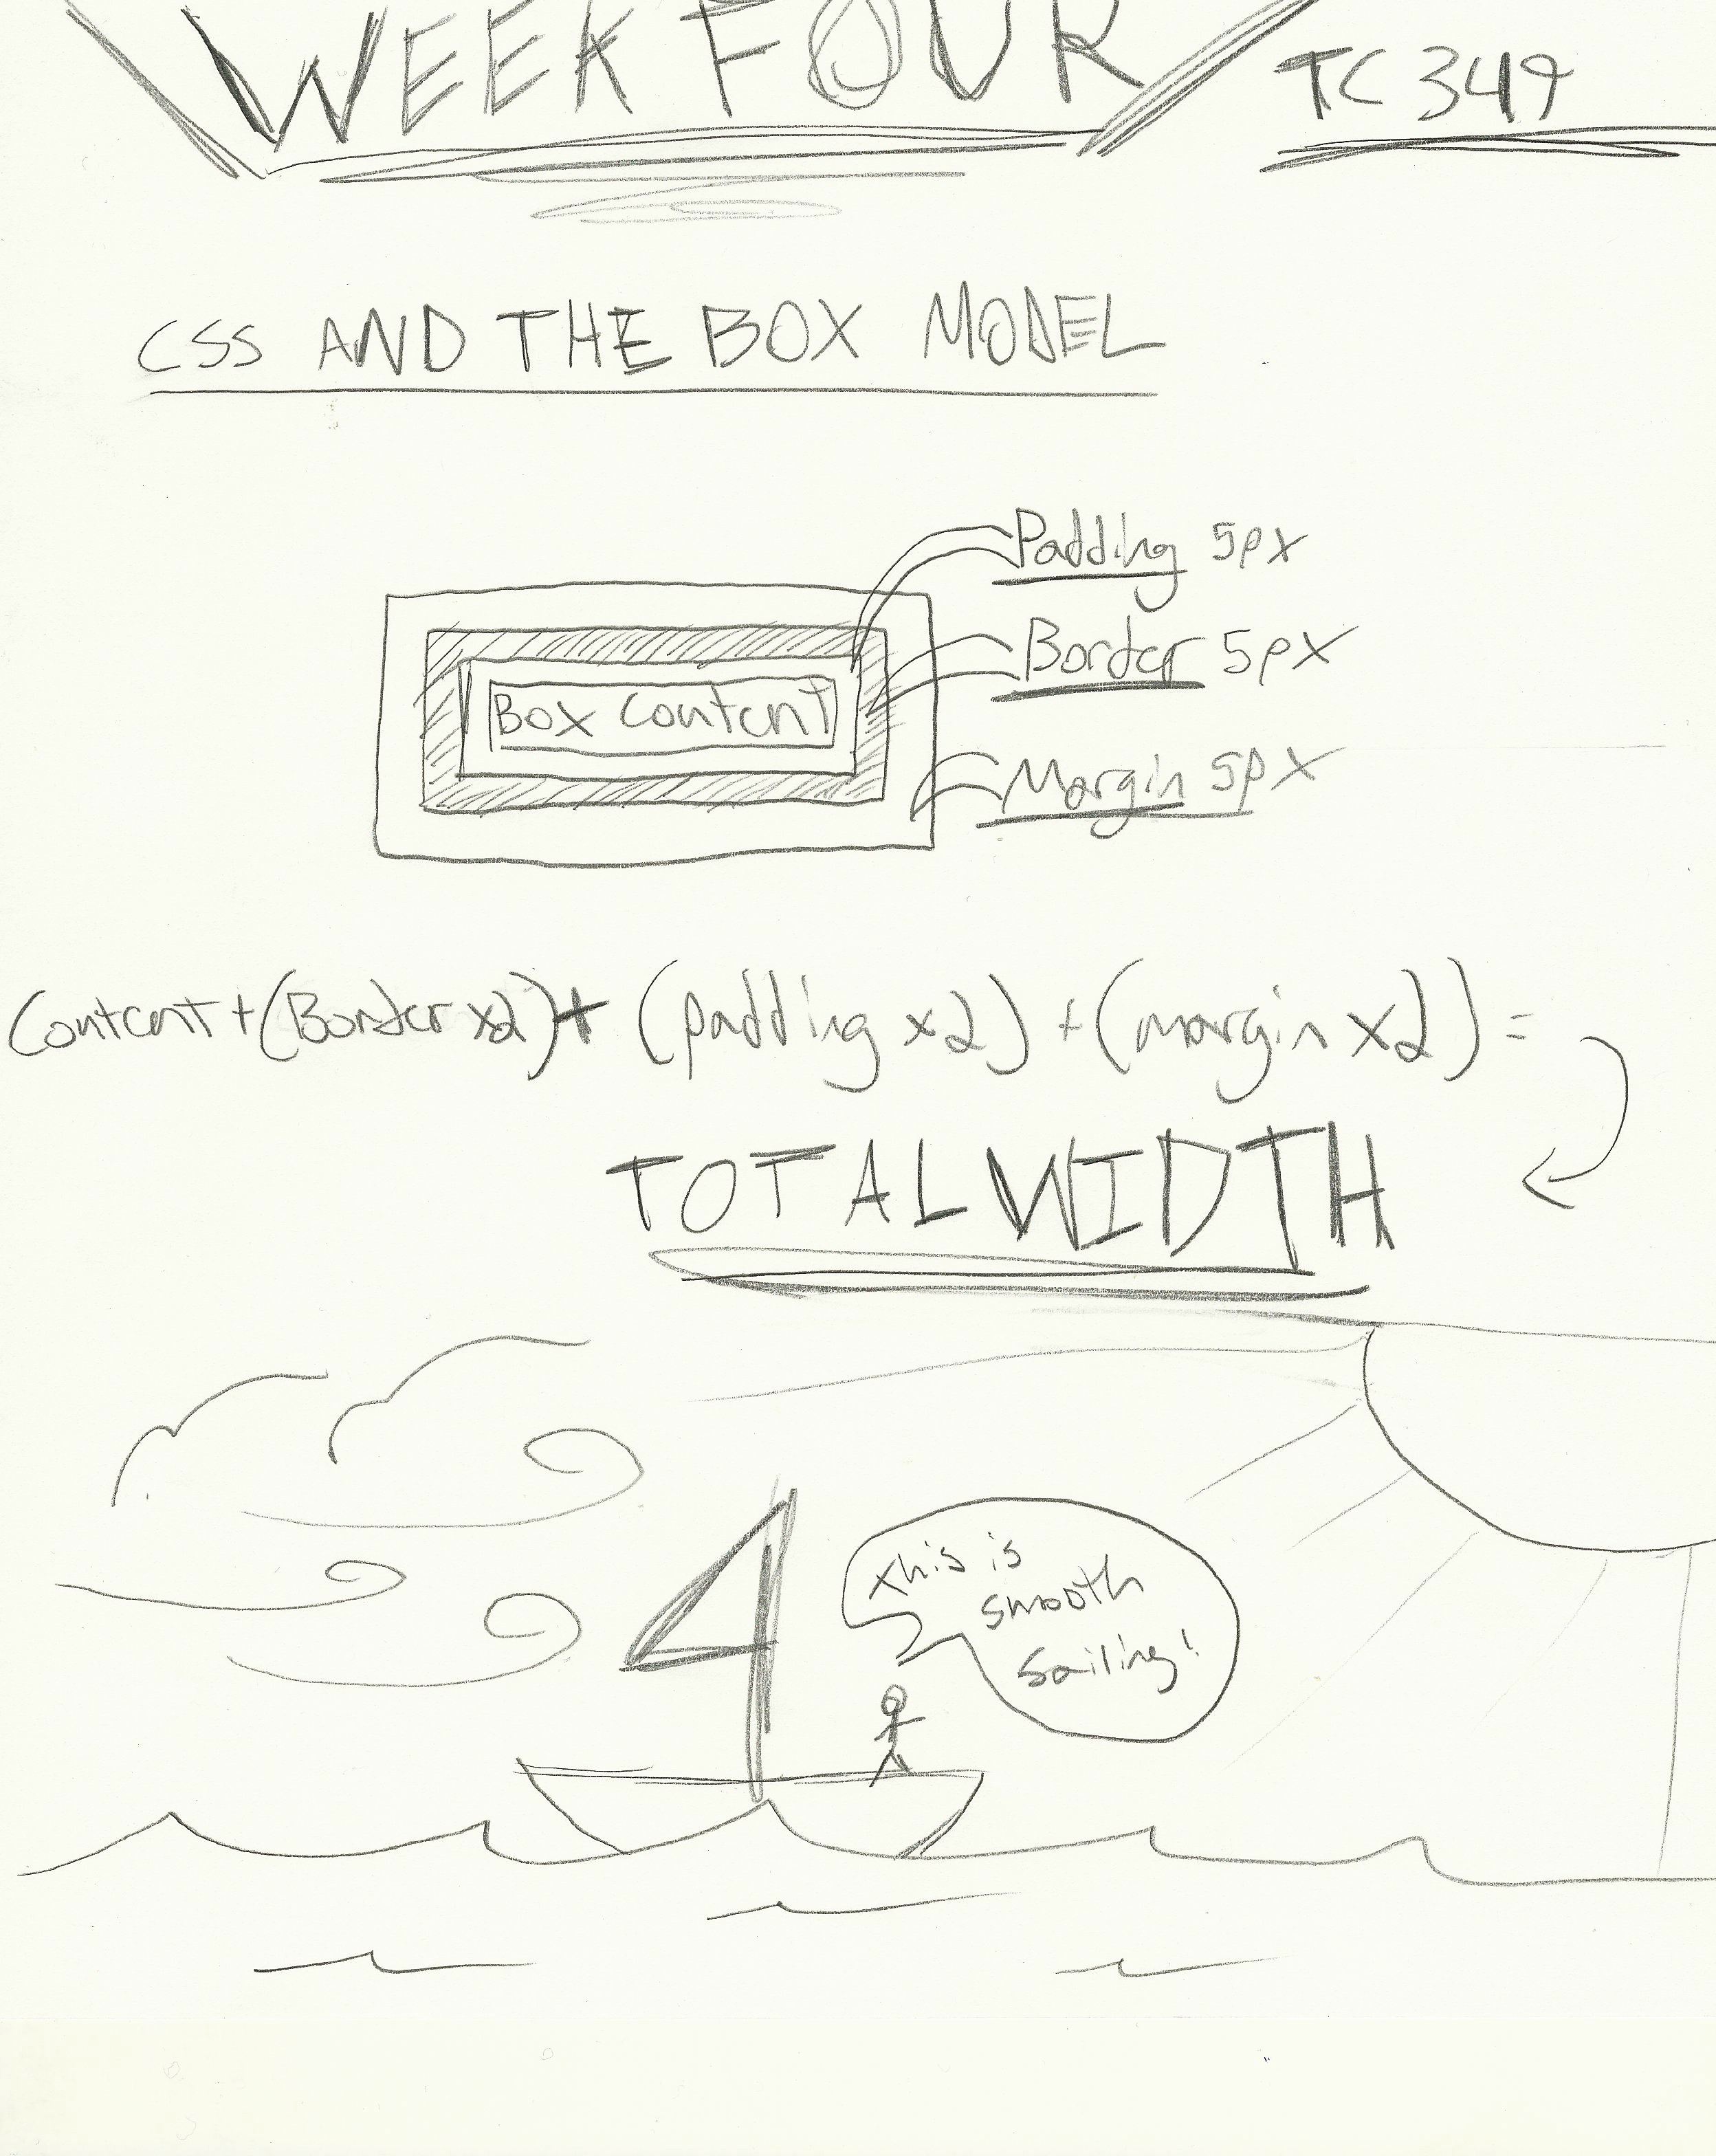 WEEK FOUR
TC 349
CSS AND THE BOX MODEL
Padding 5px
Border 5px
Box Content
Margin 5px
Content + (Border x2) + (padding x2) + (margin x2) =
TOTAL WIDTH
This is
smooth
sailing!